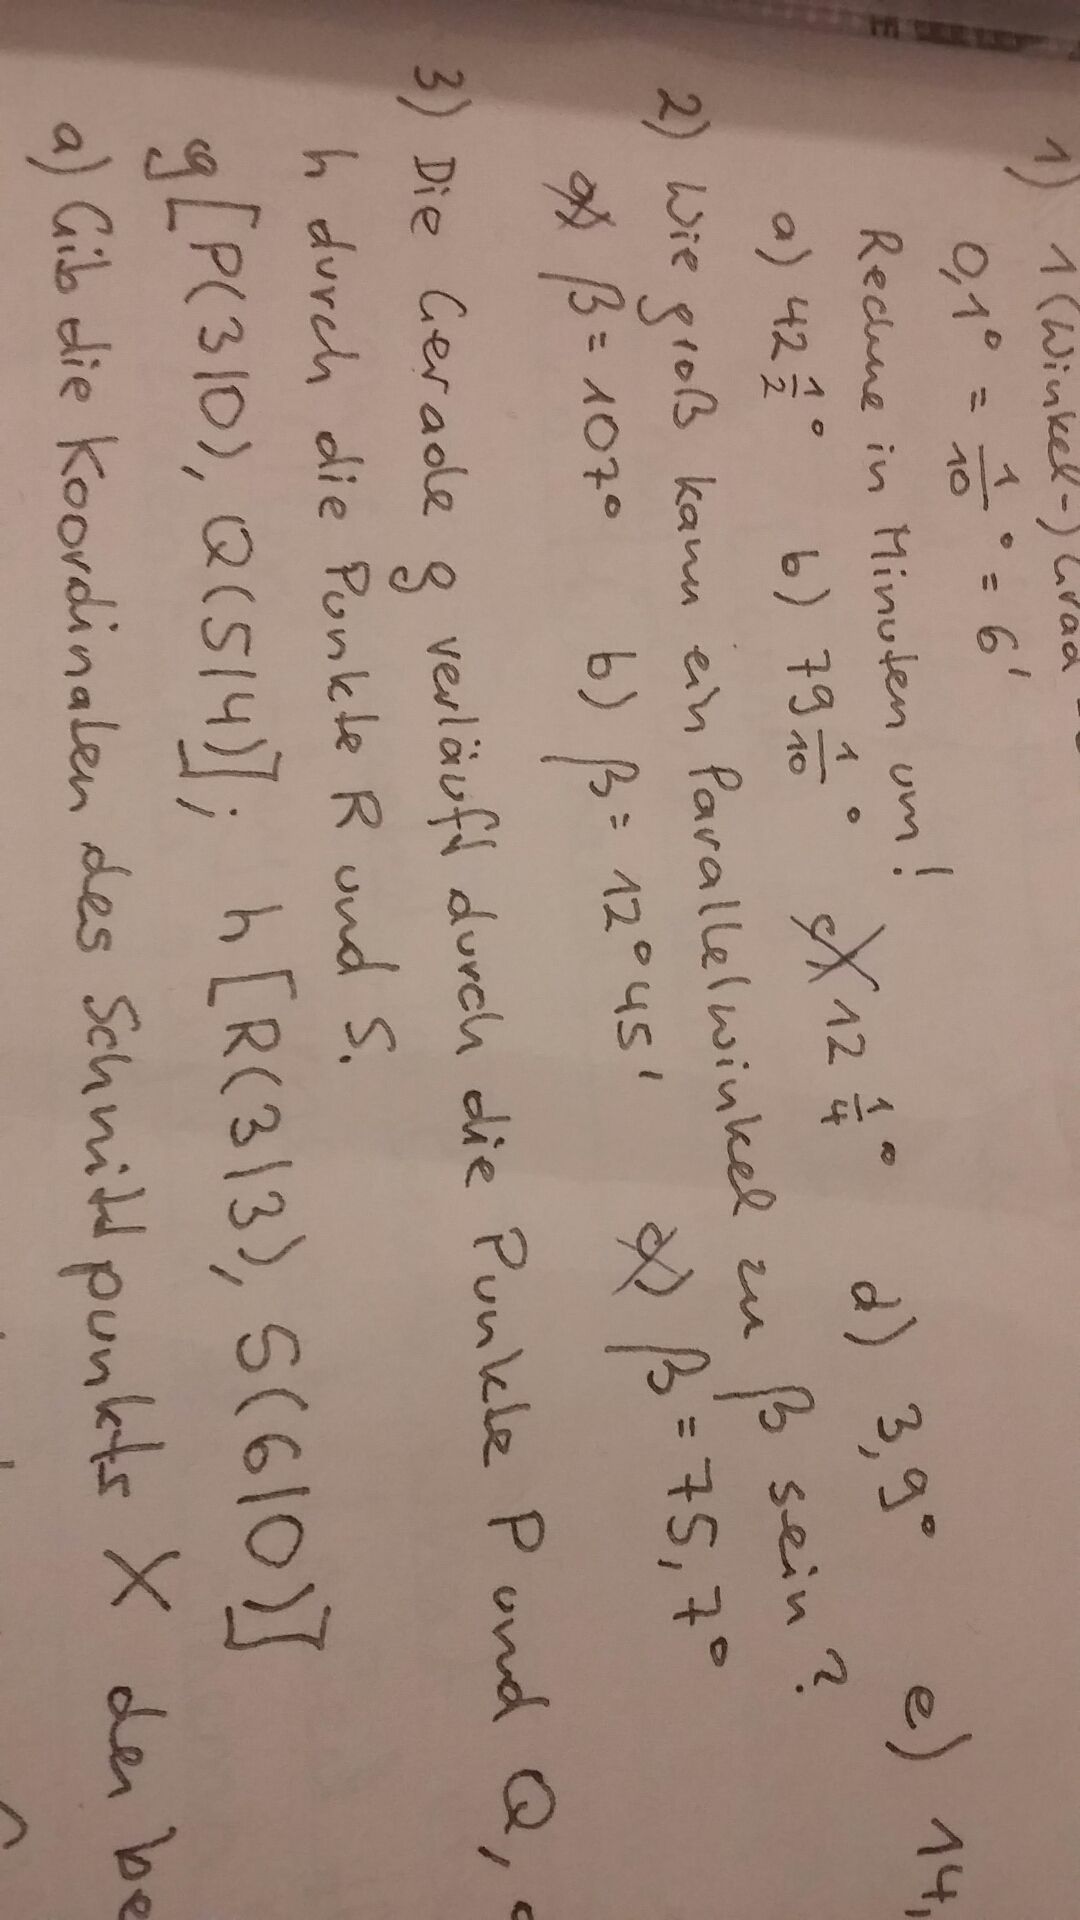 1) 1 (Winkel-) Grad
0,1° = 1/10 ° = 6'
Rechne in Minuten um!
a) 42 1/2 ° b) 79 1/10 ° c) 12 1/4 ° d) 3,9° e) 14,
2) Wie groß kann ein Parallelwinkel zu β sein?
a) β = 107° b) β = 12°45' c) β = 75,7°
3) Die Gerade g verläuft durch die Punkte P und Q,
h durch die Punkte R und S.
g [P(3|0), Q(5|4)]; h [R(3|3), S(6|0)]
a) Gib die Koordinaten des Schnittpunkts X der be